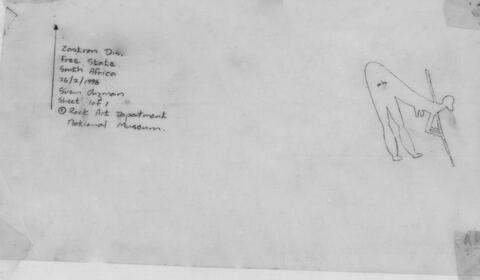 Zastron Dis.
Free State
South Africa
26/2/1998
Sven Ouzman
Sheet 1 of 1
© Rock Art Department
National Museum.